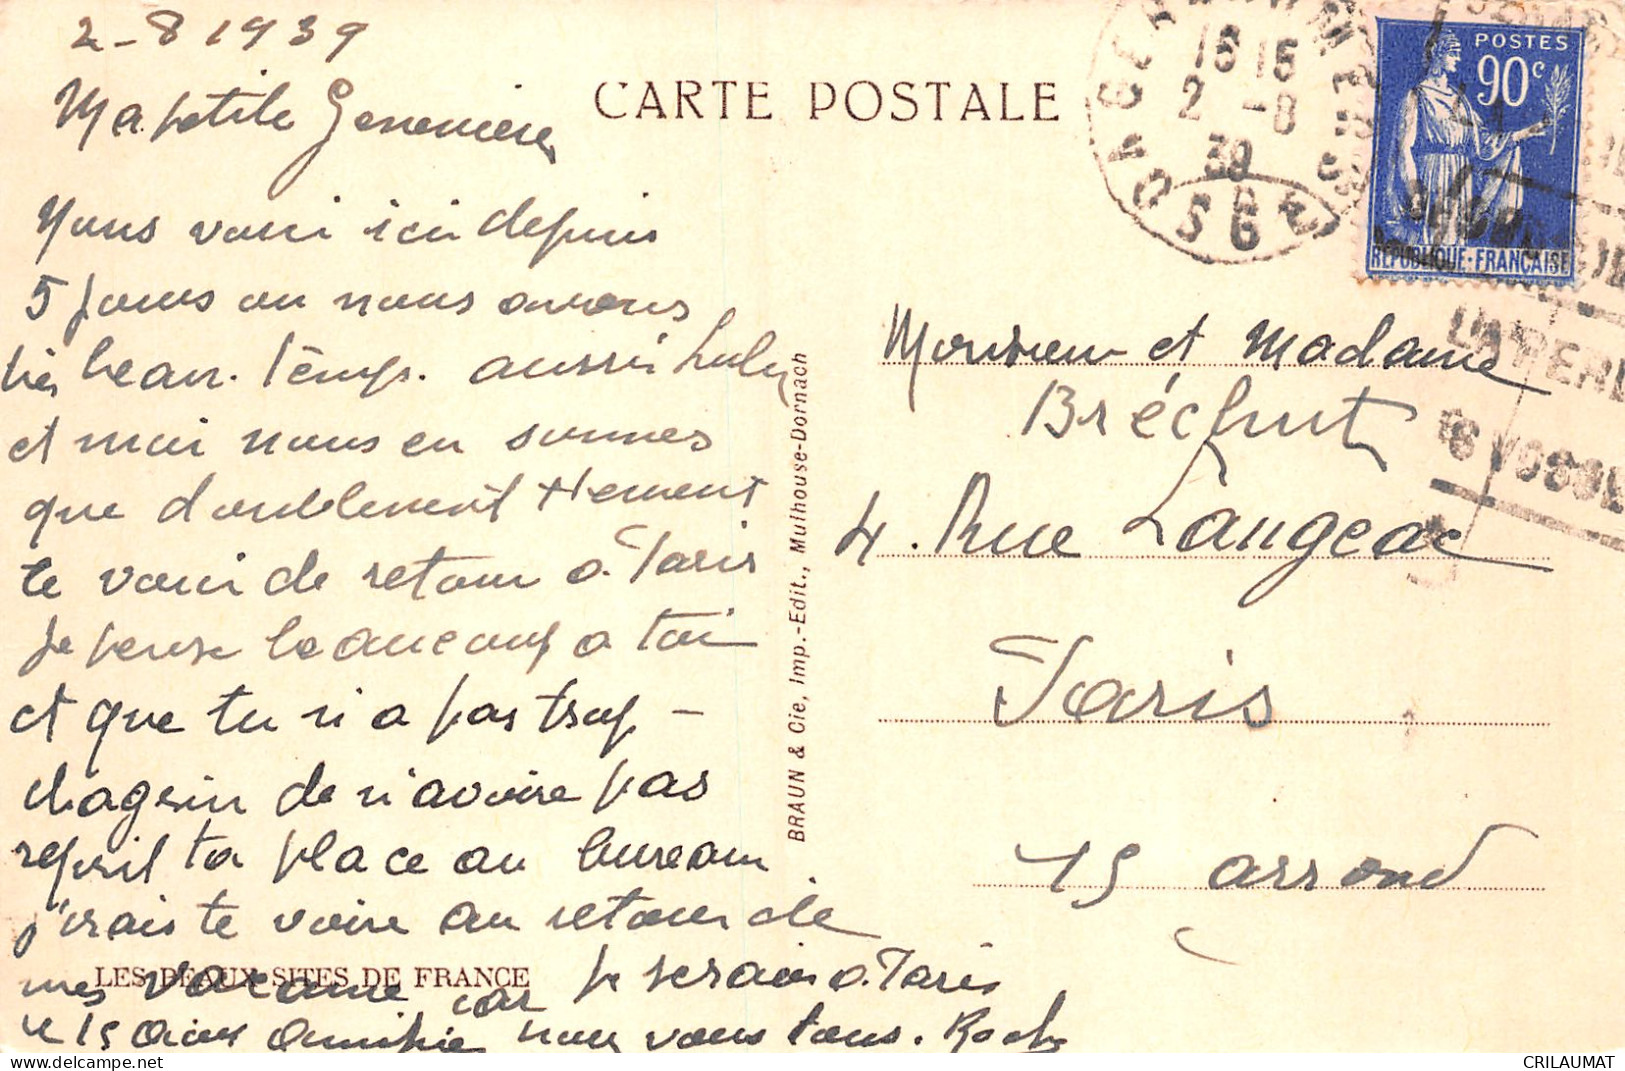 2-8 1939
Ma petite Geneviève
Nous voici ici depuis
5 jours ou nous avons
très beau. Temp. aussi Lulu
et moi nous en sommes
que doublement
te voir de retour a Paris
je pense beaucoup a toi
et que tu n'a pas trop -
chagrin de n'avoire pas
repris ta place au bureau
j'irais te voire au retour de
mes vacance car je serais a. Paris
le 15 nous vous tous.
LES BEAUX SITES DE FRANCE
CARTE POSTALE
BRAUN & Cie, Imp.-Edit., Mulhouse-Dornach
GERARDMER
18 15
2 -8
39
VOSGES
POSTES
90c
REPUBLIQUE·FRANÇAISE
LA PERLE
VOSGES
Monsieur et Madame
Bréchut
4. Rue Langeac
Paris
15 arrond
CRILAUMAT